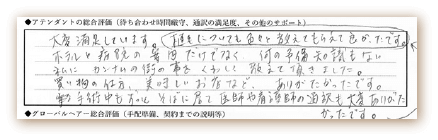 ●アテンドの総合評価（待ち合わせ時間厳守、通訳の満足度、その他のサポート）
大変満足しています。何につけても色々と教えてもらえて良かったです。
ホテルと病院の着回だけでなく、何の予備知識もない
私に カンナムの街の事をくわしく 教えて頂きました。
買い物の仕方、美味しいお店など、ありがたかったです。
手術中もずっとそばに居て 医師や看護師の通訳も大変ありがた
かったです。
●グローバルヘアー総合評価（手配準備、契約までの説明等）